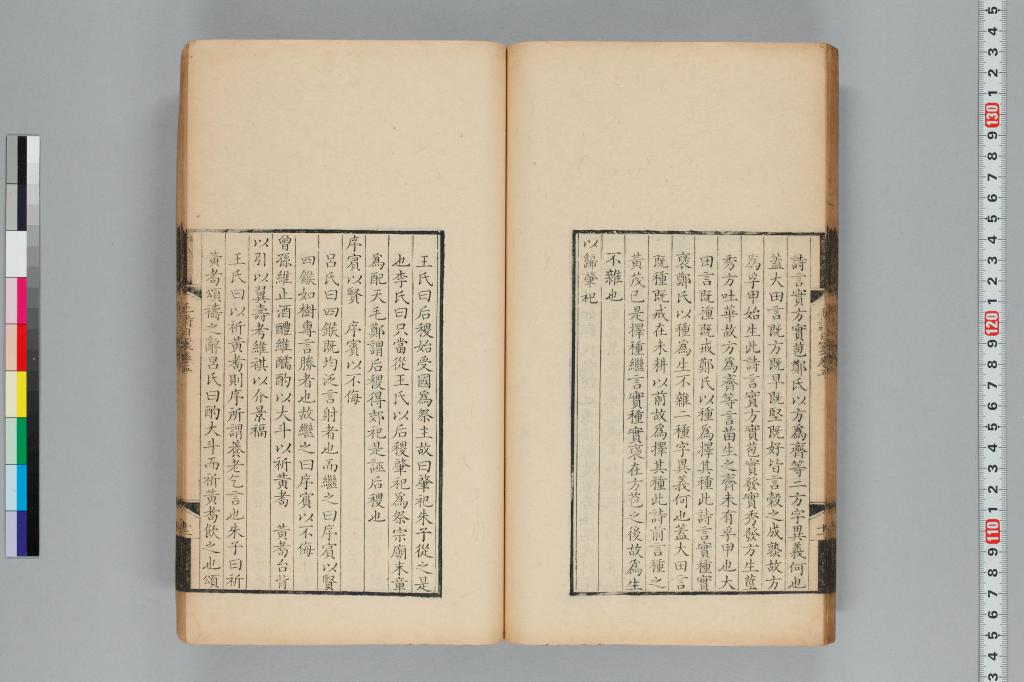 詩言實方實苞鄭氏以方為齊等二方字異義何也
蓋大田言既方既早既堅既好皆言穀之成熟故方
為孚甲始生此詩言實方實苞實發實秀發方生莖
秀方吐華故方為齊等言苗生之齊未有孚甲也大
田言既種既戒鄭氏以種為擇其種此詩言實種實
褎鄭氏以種為生不雜二種字異義何也蓋大田言
既種既戒在未耕以前故為擇其種此詩前言種之
黃茂已是擇種繼言實種實褎在方苞之後故為生
不雜也
以歸肇祀
王氏曰后稷始受國為祭主故曰肇祀朱子從之是
也李氏曰只當從王氏以后稷肇祀為祭宗廟末章
為配天毛鄭謂后稷得郊祀是誣后稷也
序賓以賢　序賓以不侮
呂氏曰四鍭既均泛言射者也而繼之曰序賓以賢
四鍭如樹專言勝者也故繼之曰序賓以不侮
曾孫維主酒醴維醹酌以大斗以祈黃耇　黃耇台背
以引以翼壽考維祺以介景福
王氏曰以祈黃耇則序所謂養老乞言也朱子曰祈
黃耇頌禱之辭呂氏曰酌大斗而祈黃耇飲之也頌